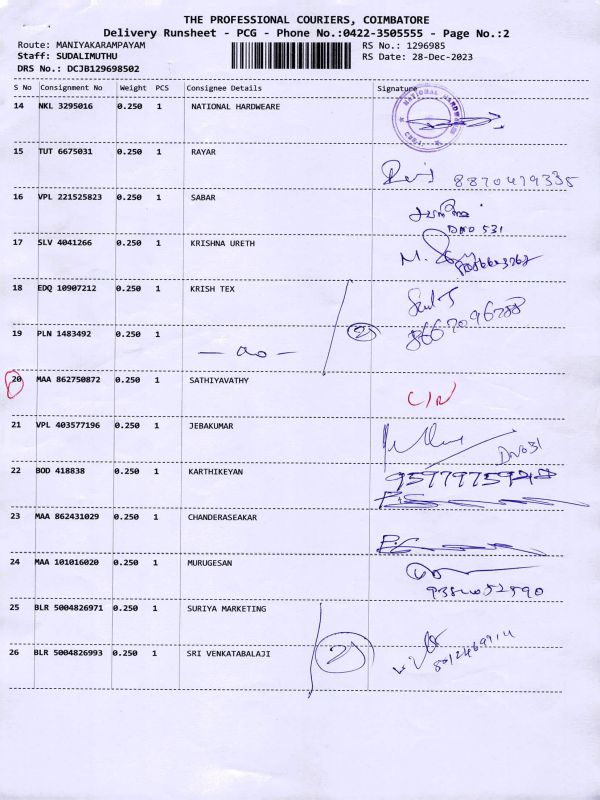 THE PROFESSIONAL COURIERS, COIMBATORE
Delivery Runsheet - PCG - Phone No.:0422-3505555 - Page No.:2
Route: MANIYAKARAMPAYAM RS No.: 1296985
Staff: SUDALIMUTHU RS Date: 28-Dec-2023
DRS No.: DCJB129698502
S No Consignment No Weight PCS Consignee Details Signature
14 NKL 3295016 0.250 1 NATIONAL HARDWEARE
NATIONAL HARDWARE
15 TUT 6675031 0.250 1 RAYAR
8870479335
16 VPL 221525823 0.250 1 SABAR
DNO 531
17 SLV 4041266 0.250 1 KRISHNA URETH
M.
18 EDQ 10907212 0.250 1 KRISH TEX
19 PLN 1483492 0.250 1 2
8667096788
— do —
20 MAA 862750872 0.250 1 SATHIYAVATHY
21 VPL 403577196 0.250 1 JEBAKUMAR
DNo31
22 BOD 418838 0.250 1 KARTHIKEYAN
23 MAA 862431029 0.250 1 CHANDERASEAKAR
24 MAA 101016020 0.250 1 MURUGESAN
25 BLR 5004826971 0.250 1 SURIYA MARKETING
26 BLR 5004826993 0.250 1 SRI VENKATABALAJI 2